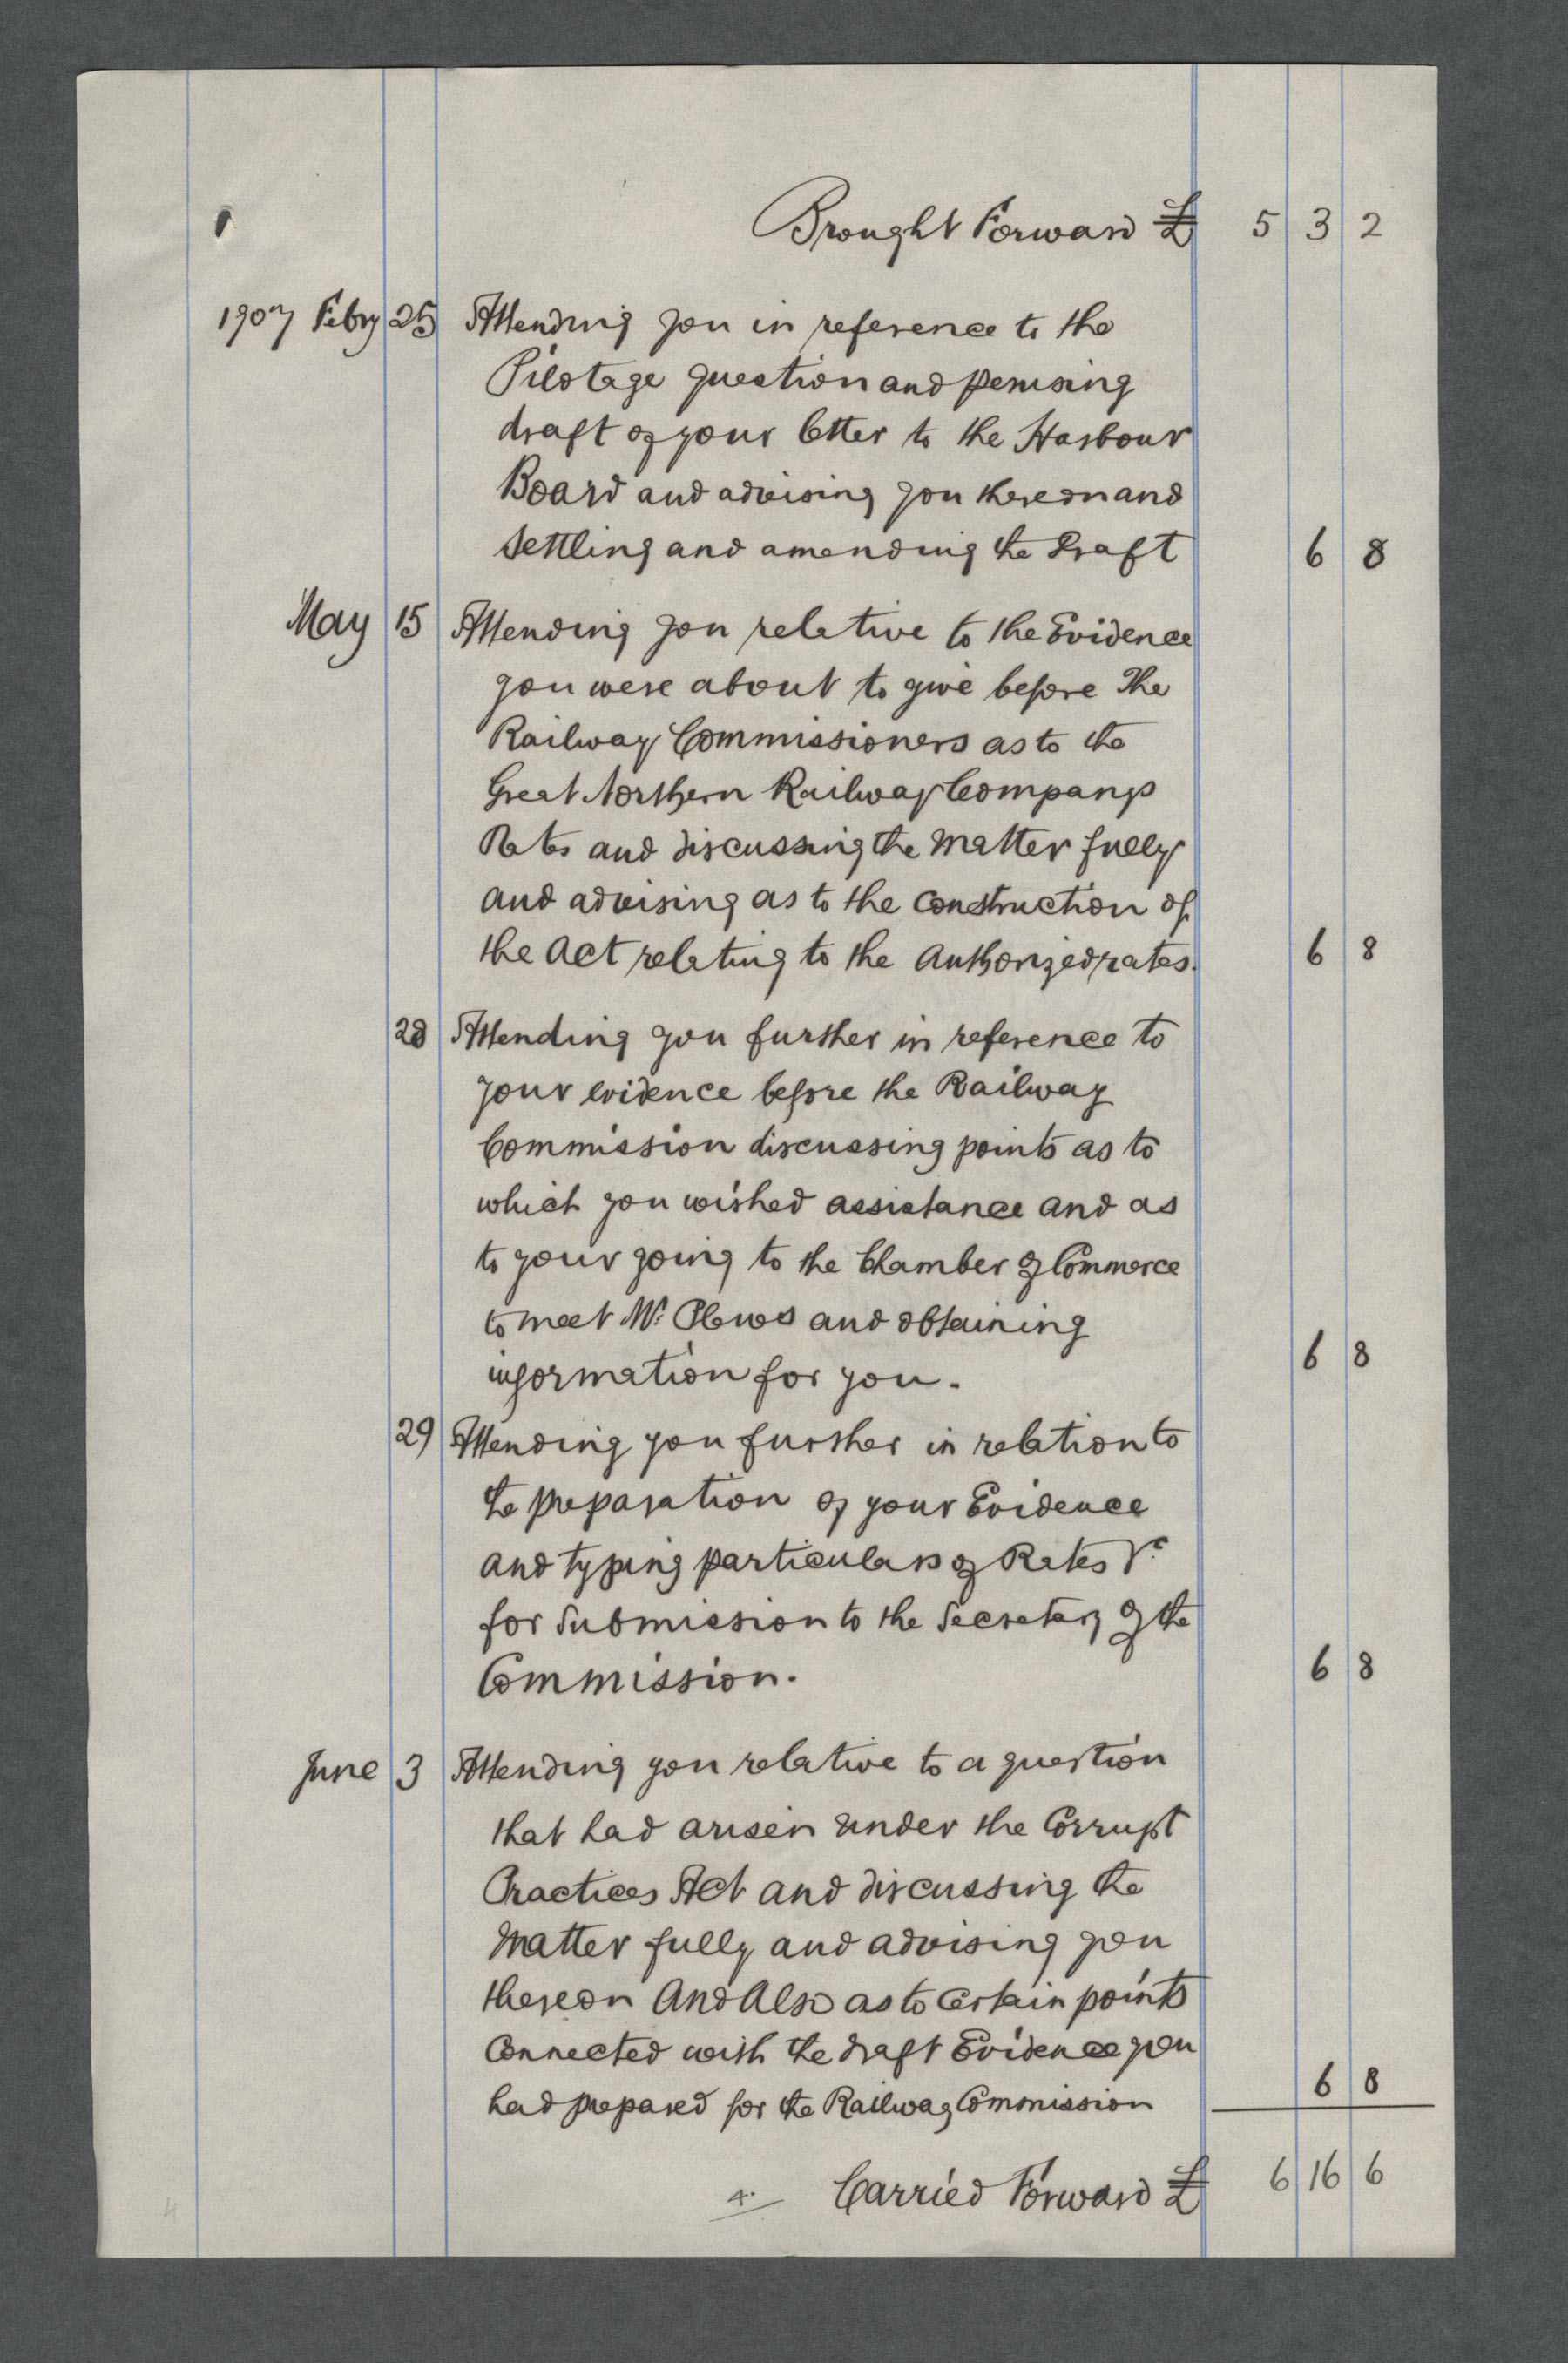 Brought Forward £ 5 3 2
1907 Febry 25 Attending you in reference to the
Pilotage question and perusing
draft of your letter to the Harbour
Board and advising you thereon and
settling and amending the Draft 6 8
May 15 Attending you relative to the Evidence
you were about to give before The
Railway Commissioners as to the
Great Northern Railway Companys
Rates and discussing the matter fully
and advising as to the construction of
the Act relating to the Authorized rates. 6 8
28 Attending you further in reference to
your evidence before the Railway
Commission discussing points as to
which you wished assistance and as
to your going to the Chamber of Commerce
to meet Mr. Plews and obtaining
information for you. 6 8
29 Attending you further in relation to
the preparation of your Evidence
and typing particulars of Rates &c
for Submission to the Secretary of the
Commission. 6 8
June 3 Attending you relative to a question
that had arisen under the Corrupt
Practices Act and discussing the
matter fully and advising you
thereon And Also as to certain points
connected with the draft Evidence you
had prepared for the Railway Commission 6 8
4. Carried Forward £ 6 16 6
4